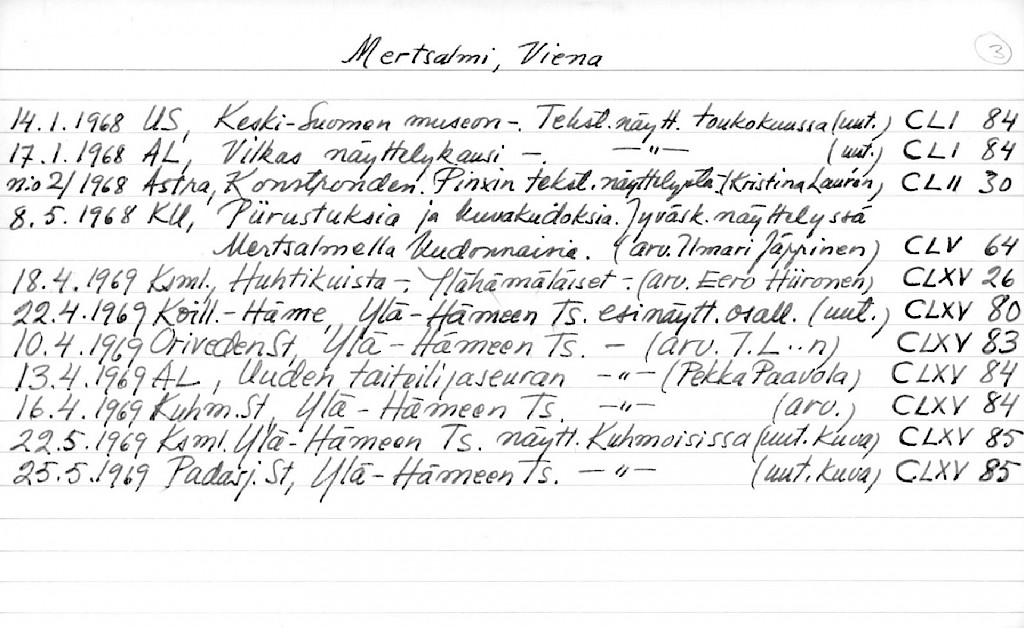 Mertsalmi, Viena 3
14.1.1968 US, Keski-Suomen museon -. Tekst.näytt. toukokuussa (uut.) CLI 84
17.1.1968 AL, Vilkas näyttelykausi -. —"— (uut.) CLI 84
n:o 2/1968 Astra, Konstronden. Pinxin tekst.näyttelystä. (Kristina Lauren) CLII 30
8.5.1968 KU, Piirustuksia ja kuvakudoksia. Jyväsk. näyttelyssä
Mertsalmella Uudonnairia. (arv. Ilmari Jäppinen) CLV 64
18.4.1969 Ksml., Huhtikuista -. Ylähämäläiset - (arv. Eero Hiironen) CLXV 26
22.4.1969 Koill.-Häme, Ylä-Hämeen Ts. esinäytt. osall. (uut.) CLXV 80
10.4.1969 Oriveden St, Ylä-Hämeen Ts. - (arv. T.L..n) CLXV 83
13.4.1969 AL, Uuden taiteilijaseuran —"— (Pekka Paavola) CLXV 84
16.4.1969 Kuhm.St, Ylä-Hämeen Ts. —"— (arv.) CLXV 84
22.5.1969 Ksml. Ylä-Hämeen Ts. näytt. Kuhmoisissa (uut. kuva) CLXV 85
25.5.1969 Padasj. St, Ylä-Hämeen Ts. —"— (uut. kuva) CLXV 85